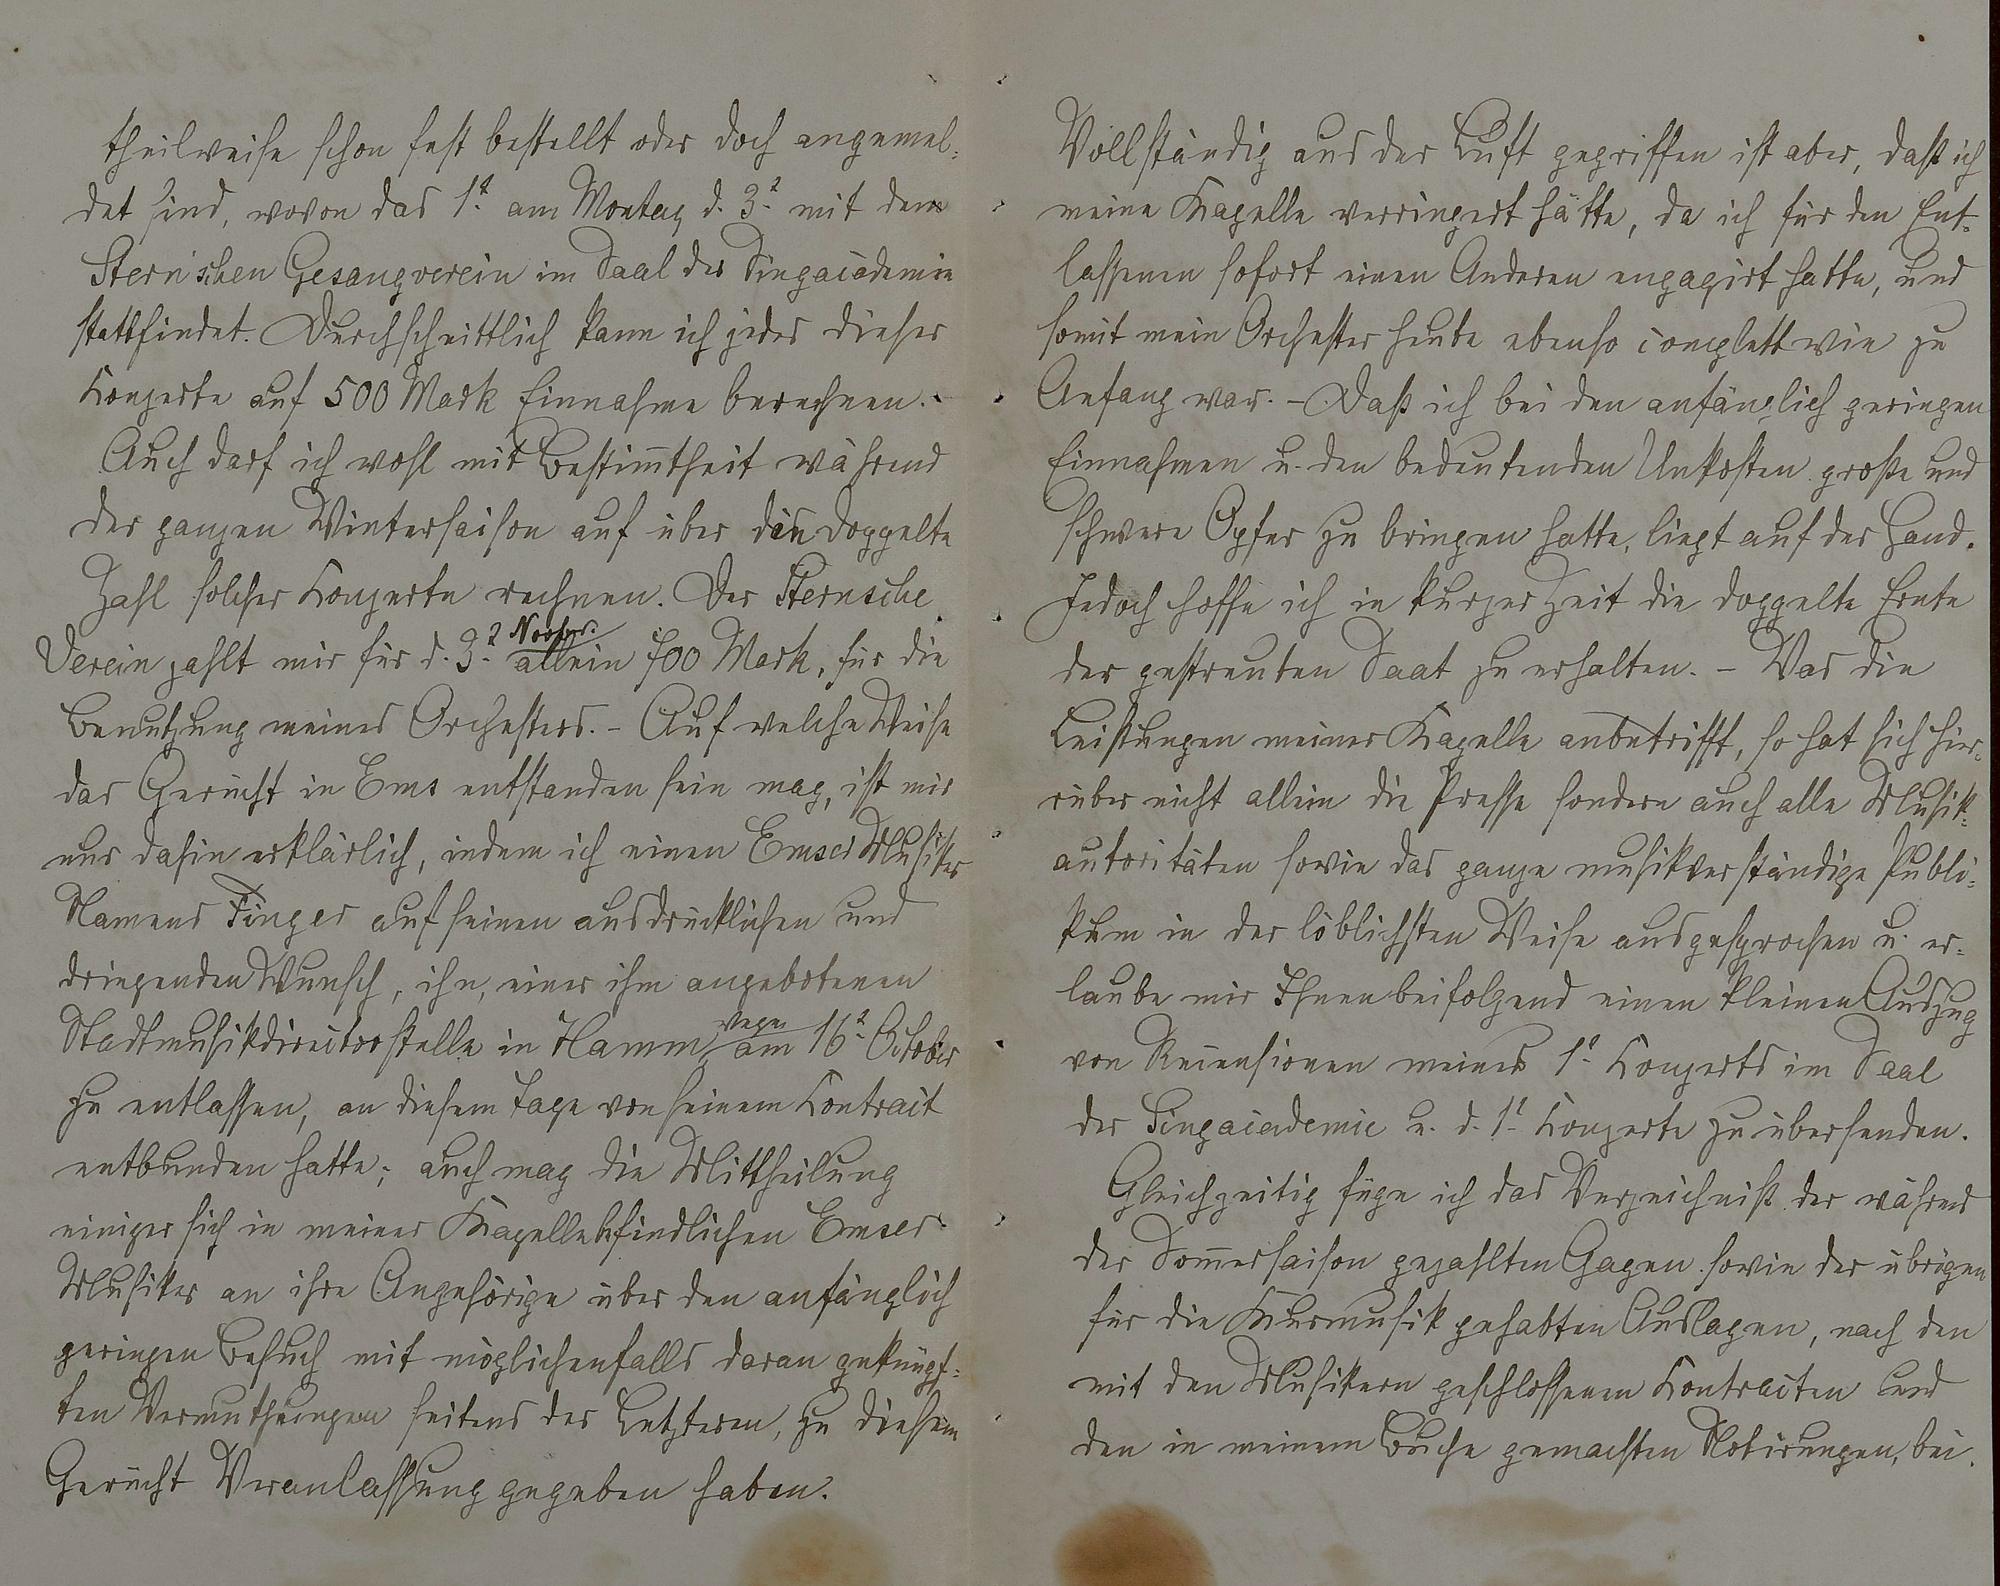 theilweise schon fest bestellt oder doch angemel-
det sind, wovon das 1t. am Montag d. 3t. mit dem
Stern'schen Gesangverein im Saal der Singacademie
stattfindet. Durchschnittlich kann ich jedes dieser
Konzerte auf 500 Mark Einnahme berechnen. -
Auch darf ich wohl mit Bestimtheit während
der ganzen Wintersaison auf über die doppelte
Zahl solcher Konzerte rechnen. Der Sternsche
Verein zahlt mir für d. 3t. Novbr. allein 700 Mark, für die
Benutzung meines Orchesters. - Auf welche Weise
das Gerücht in Ems entstanden sein mag, ist mir
nur dahin erklärlich, indem ich einen Emser Musiker
Namens Finger auf seinen ausdrücklichen und
dringenden Wunsch, ihn, einer ihm angebotenen
Stadtmusikdirectorstelle in Hamm wegen am 16t. October
zu entlassen, an diesem Tage von seinem Contract
entbunden hatte; auch mag die Mittheilung
einiger sich in meiner Kapelle befindlichen Emser
Musiker an ihre Angehörige über den anfänglich
geringen Besuch mit möglichenfalls daran geknüpf-
ten Vermuthungen seitens der Letzteren, zu diesem
Gerücht Veranlassung gegeben haben.
Vollständig aus der Luft gegriffen ist aber, daß ich
meine Kapelle verringert hätte, da ich für den Ent-
lassenen sofort einen Anderen engagirt hatte, und
somit mein Orchester heute ebenso complett wie zu
Anfang war. - Daß ich bei den anfänglich geringen
Einnahmen u. den bedeutenden Unkosten große und
schwere Opfer zu bringen hatte, liegt auf der Hand.
Jedoch hoffe ich in kurzer Zeit die doppelte Ernte
der gestreuten Saat zu erhalten. - Was die
Leistungen meiner Kapelle anbetrifft, so hat sich hier-
rüber nicht allein die Presse sondern auch alle Musik-
autoritäten sowie das ganze musikverständige Publi-
kum in der löblichsten Weise ausgesprochen u. er-
laube mir Ihnen beifolgend einen kleinen Auszug
von Recensionen meines 1t. Konzerts im Saal
der Singacademie u. d. 1t. Konzerte zu übersenden.
Gleichzeitig füge ich das Verzeichniß der während
der Somersaison gezahlten Gagen sowie der übrigen
für die Kurmusik gehabten Auslagen, nach den
mit den Musikern geschlossenen Contracten und
den in meinem Buche gemachten Notirungen, bei.